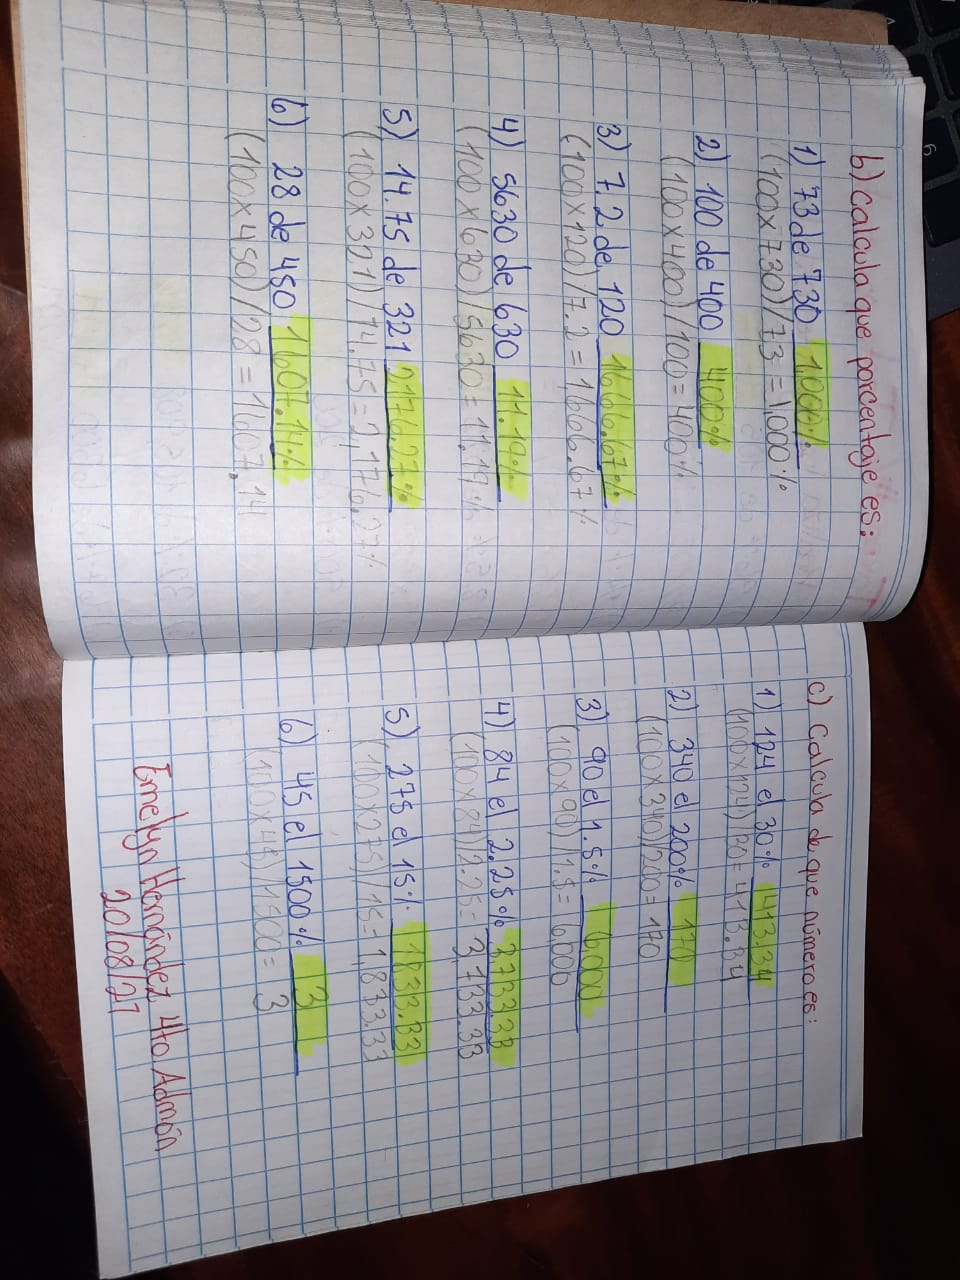 b) Calcula que porcentaje es:
1) 73 de 730 1,000%
(100x730)/73 = 1,000%
2) 100 de 400 400%
(100x400)/100 = 400%
3) 7.2 de 120 1666.67%
(100x120)/7.2 = 1,666.67%
4) 5630 de 630 11.19%
(100x630)/5630 = 11.19%
5) 14.75 de 321 2176.27%
(100x321)/14.75 = 2,176.27%
6) 28 de 450 1607.14%
(100x450)/28 = 1607.14
c) Calcula de que número es:
1) 124 el 30% 413.34
(100x124)/30 = 413.34
2) 340 el 200% 170
(100x340)/200 = 170
3) 90 el 1.5% 6000
(100x90)/1.5 = 6,000
4) 84 el 2.25% 3733.33
(100x84)/2.25 = 3,733.33
5) 275 el 15% 1833.33
(100x275)/15 = 1,833.33
6) 45 el 1500% 3
(100x45)/1500 = 3
Emelyn Hernández 4to. Admón
20/08/21